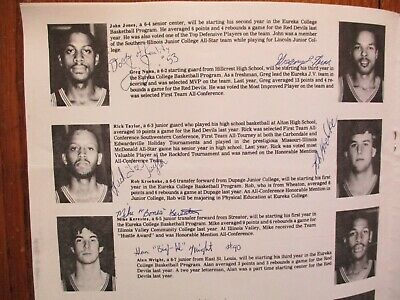 John Jones, a 6-4 senior center, will be starting his second year in the Eureka College
Basketball Program. He averaged 6 points and 4 rebounds a game for the Red Devils last
year. He was also voted one of the Top Defensive Players on the team. John was a member
of the Southern-Illinois Junior College All-Star team while playing for Lincoln Junior Col-
lege.
53
Greg Nunn, a 6-4 guard from Hillcrest High School, will be starting his third year in
the Eureka College Basketball Program. As a freshman, Greg led the Eureka J.V. team in
scoring and was selected MVP on the team. Last year, Greg averaged 13 points and 4
rebounds a game for the Red Devils and was voted Most Improved Player on the team and
to First Team All-Conference.
Rick Taylor, a 6-5 guard who played his high school basketball at Alton High School,
averaged 10 points a game for the Red Devils last year. Rick was selected First Team All-
Southwestern Conference, First Team All-Tourney at both the Carbondale and
Edwardsville Holiday Tournaments and played in the prestigious Missouri-Illinois
McDonald All-Star game his senior year in high school. Last year, Rick was voted Most
Valuable Player at the Rockford Tournament and was named on the Honorable Mention
All-Conference Team.
Rob Kroehnke, a 6-6 transfer forward from Dupage Junior College, will be starting his
third year in the Eureka College Basketball Program. Rob, who is from Wheaton, averaged
6 points and 6 rebounds a game for Eureka last year. An All-Conference Honorable Mention
last year, Rob will be majoring in Physical Education at Eureka College.
Mike "Bones"
Mike Kerrster, a 6-5 junior transfer forward from Streator, will be starting his third year
in the Eureka College Basketball Program. Mike averaged 9 points and 6 rebounds a game for
Illinois Valley Community College last year. Mike received the Team
"Hustle Award" and was Honorable Mention All-Conference.
Alan "Big-Al" Wright #40
Alan Wright, a 6-7 junior from East St. Louis, will be starting his third year in the Eureka
College Basketball Program. Alan averaged 3 points and 3 rebounds a game for the Red
Devils last year. A two year letterman, Alan was a part time starting center for the Red
Devils last year.